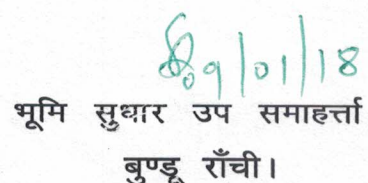 09/01/18
भूमि सुधार उप समाहर्त्ता
बुण्डू राँची।